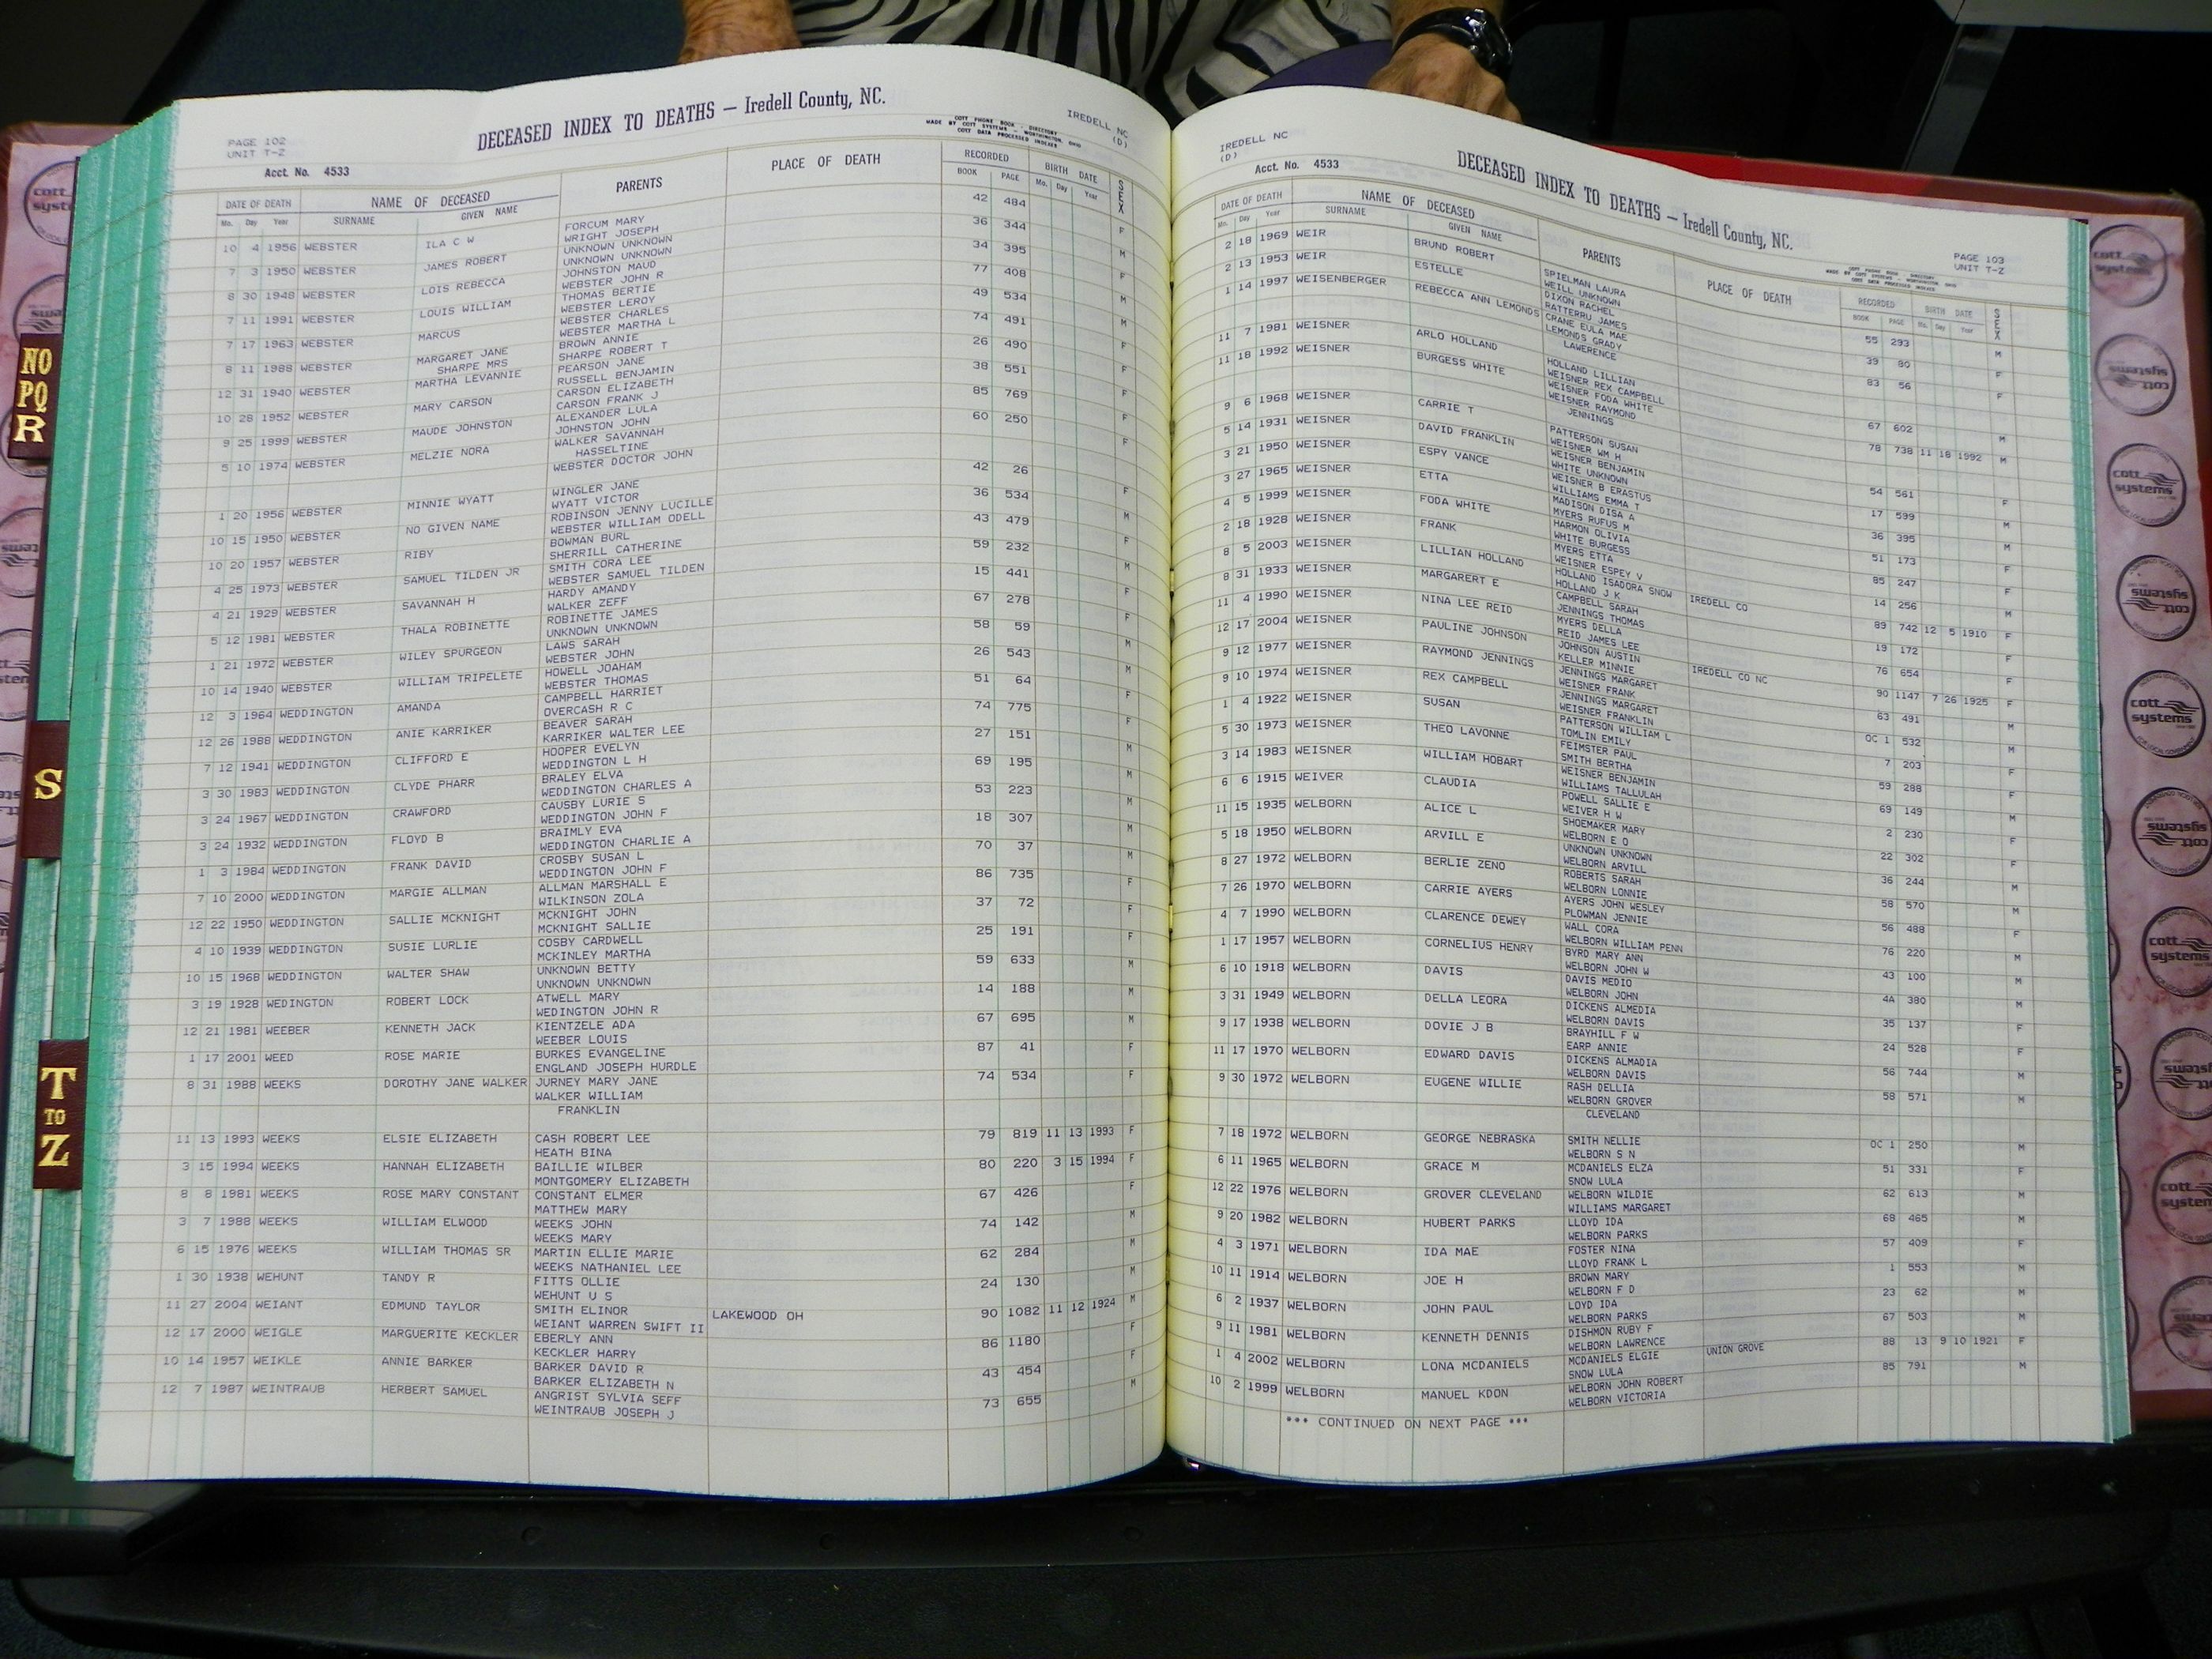 PAGE 102
UNIT T-Z
DECEASED INDEX TO DEATHS — Iredell County, NC.
IREDELL NC
(D)
COTT PHONE BOOK - DIRECTORY
MADE BY COTT SYSTEMS - WORTHINGTON, OHIO
COTT DATA PROCESSED INDEXES
Acct. No. 4533
DATE OF DEATH NAME OF DECEASED PARENTS PLACE OF DEATH RECORDED BIRTH DATE SEX
Mo. Day Year SURNAME GIVEN NAME BOOK PAGE Mo. Day Year
10 4 1956 WEBSTER ILA C W FORCUM MARY 42 484 F
WRIGHT JOSEPH
7 3 1950 WEBSTER JAMES ROBERT UNKNOWN UNKNOWN 36 344 M
UNKNOWN UNKNOWN
8 30 1948 WEBSTER LOIS REBECCA JOHNSTON MAUD 34 395 F
WEBSTER JOHN R
7 11 1991 WEBSTER LOUIS WILLIAM THOMAS BERTIE 77 408 M
WEBSTER LEROY
7 17 1963 WEBSTER MARCUS WEBSTER CHARLES 49 534 M
WEBSTER MARTHA L
8 11 1988 WEBSTER MARGARET JANE BROWN ANNIE 74 491 F
SHARPE MRS SHARPE ROBERT T
12 31 1940 WEBSTER MARTHA LEVANNIE PEARSON JANE 26 490 F
RUSSELL BENJAMIN
10 28 1952 WEBSTER MARY CARSON CARSON ELIZABETH 38 551 F
CARSON FRANK J
9 25 1999 WEBSTER MAUDE JOHNSTON ALEXANDER LULA 85 769 F
JOHNSTON JOHN
5 10 1974 WEBSTER MELZIE NORA WALKER SAVANNAH 60 250 F
HASSELTINE
WEBSTER DOCTOR JOHN
1 20 1956 WEBSTER MINNIE WYATT WINGLER JANE 42 26 F
WYATT VICTOR
10 15 1950 WEBSTER NO GIVEN NAME ROBINSON JENNY LUCILLE 36 534 M
WEBSTER WILLIAM ODELL
10 20 1957 WEBSTER RIBY BOWMAN BURL 43 479 F
SHERRILL CATHERINE
4 25 1973 WEBSTER SAMUEL TILDEN JR SMITH CORA LEE 59 232 M
WEBSTER SAMUEL TILDEN
4 21 1929 WEBSTER SAVANNAH H HARDY AMANDY 15 441 F
WALKER ZEFF
5 12 1981 WEBSTER THALA ROBINETTE ROBINETTE JAMES 67 278 F
UNKNOWN UNKNOWN
1 21 1972 WEBSTER WILEY SPURGEON LAWS SARAH 58 59 M
WEBSTER JOHN
10 14 1940 WEBSTER WILLIAM TRIPELETE HOWELL JOAHAM 26 543 M
WEBSTER THOMAS
12 3 1964 WEDDINGTON AMANDA CAMPBELL HARRIET 51 64 F
OVERCASH R C
12 26 1988 WEDDINGTON ANIE KARRIKER BEAVER SARAH 74 775 F
KARRIKER WALTER LEE
7 12 1941 WEDDINGTON CLIFFORD E HOOPER EVELYN 27 151 M
WEDDINGTON L H
3 30 1983 WEDDINGTON CLYDE PHARR BRALEY ELVA 69 195 M
WEDDINGTON CHARLES A
3 24 1967 WEDDINGTON CRAWFORD CAUSBY LURIE S 53 223 M
WEDDINGTON JOHN F
3 24 1932 WEDDINGTON FLOYD B BRAIMLY EVA 18 307 M
WEDDINGTON CHARLIE A
1 3 1984 WEDDINGTON FRANK DAVID CROSBY SUSAN L 70 37 M
WEDDINGTON JOHN F
7 10 2000 WEDDINGTON MARGIE ALLMAN ALLMAN MARSHALL E 86 735 F
WILKINSON ZOLA
12 22 1950 WEDDINGTON SALLIE MCKNIGHT MCKNIGHT JOHN 37 72 F
MCKNIGHT SALLIE
4 10 1939 WEDDINGTON SUSIE LURLIE COSBY CARDWELL 25 191 F
MCKINLEY MARTHA
10 15 1968 WEDDINGTON WALTER SHAW UNKNOWN BETTY 59 633 M
UNKNOWN UNKNOWN
3 19 1928 WEDINGTON ROBERT LOCK ATWELL MARY 14 188 M
WEDINGTON JOHN R
12 21 1981 WEEBER KENNETH JACK KIENTZELE ADA 67 695 M
WEEBER LOUIS
1 17 2001 WEED ROSE MARIE BURKES EVANGELINE 87 41 F
ENGLAND JOSEPH HURDLE
8 31 1988 WEEKS DOROTHY JANE WALKER JURNEY MARY JANE 74 534 F
WALKER WILLIAM
FRANKLIN
11 13 1993 WEEKS ELSIE ELIZABETH CASH ROBERT LEE 79 819 11 13 1993 F
HEATH BINA
3 15 1994 WEEKS HANNAH ELIZABETH BAILLIE WILBER 80 220 3 15 1994 F
MONTGOMERY ELIZABETH
8 8 1981 WEEKS ROSE MARY CONSTANT CONSTANT ELMER 67 426 F
MATTHEW MARY
3 7 1988 WEEKS WILLIAM ELWOOD WEEKS JOHN 74 142 M
WEEKS MARY
6 15 1976 WEEKS WILLIAM THOMAS SR MARTIN ELLIE MARIE 62 284 M
WEEKS NATHANIEL LEE
1 30 1938 WEHUNT TANDY R FITTS OLLIE 24 130 M
WEHUNT U S
11 27 2004 WEIANT EDMUND TAYLOR SMITH ELINOR LAKEWOOD OH 90 1082 11 12 1924 M
WEIANT WARREN SWIFT II
12 17 2000 WEIGLE MARGUERITE KECKLER EBERLY ANN 86 1180 F
KECKLER HARRY
10 14 1957 WEIKLE ANNIE BARKER BARKER DAVID R 43 454 F
BARKER ELIZABETH N
12 7 1987 WEINTRAUB HERBERT SAMUEL ANGRIST SYLVIA SEFF 73 655 M
WEINTRAUB JOSEPH J
IREDELL NC
(D)
DECEASED INDEX TO DEATHS — Iredell County, NC.
PAGE 103
UNIT T-Z
COTT PHONE BOOK - DIRECTORY
MADE BY COTT SYSTEMS - WORTHINGTON, OHIO
COTT DATA PROCESSED INDEXES
Acct. No. 4533
DATE OF DEATH NAME OF DECEASED PARENTS PLACE OF DEATH RECORDED BIRTH DATE SEX
Mo. Day Year SURNAME GIVEN NAME BOOK PAGE Mo. Day Year
2 18 1969 WEIR BRUND ROBERT SPIELMAN LAURA 55 293 M
WEILL UNKNOWN
2 13 1953 WEIR ESTELLE DIXON RACHEL 39 80 F
RATTERRU JAMES
1 14 1997 WEISENBERGER REBECCA ANN LEMONDS CRANE EULA MAE 83 56 F
LEMONDS GRADY
LAWERENCE
11 7 1981 WEISNER ARLO HOLLAND HOLLAND LILLIAN 67 602 M
WEISNER REX CAMPBELL
11 18 1992 WEISNER BURGESS WHITE WEISNER FODA WHITE 78 738 11 18 1992 M
WEISNER RAYMOND
JENNINGS
9 6 1968 WEISNER CARRIE T PATTERSON SUSAN 54 561 F
WEISNER WM H
5 14 1931 WEISNER DAVID FRANKLIN WEISNER BENJAMIN 17 599 M
WHITE UNKNOWN
3 21 1950 WEISNER ESPY VANCE WEISNER B ERASTUS 36 395 M
WILLIAMS EMMA T
3 27 1965 WEISNER ETTA MADISON DISA A 51 173 F
MYERS RUFUS M
4 5 1999 WEISNER FODA WHITE HARMON OLIVIA 85 247 F
WHITE BURGESS
2 18 1928 WEISNER FRANK MYERS ETTA 14 256 M
WEISNER ESPEY V
8 5 2003 WEISNER LILLIAN HOLLAND HOLLAND ISADORA SNOW IREDELL CO 89 742 12 5 1910 F
HOLLAND J K
8 31 1933 WEISNER MARGARERT E CAMPBELL SARAH 19 172 F
JENNINGS THOMAS
11 4 1990 WEISNER NINA LEE REID MYERS DELLA 76 654 F
REID JAMES LEE
12 17 2004 WEISNER PAULINE JOHNSON JOHNSON AUSTIN IREDELL CO NC 90 1147 7 26 1925 F
KELLER MINNIE
9 12 1977 WEISNER RAYMOND JENNINGS JENNINGS MARGARET 63 491 M
WEISNER FRANK
9 10 1974 WEISNER REX CAMPBELL JENNINGS MARGARET OC 1 532 M
WEISNER FRANKLIN
1 4 1922 WEISNER SUSAN PATTERSON WILLIAM L 7 203 F
TOMLIN EMILY
5 30 1973 WEISNER THEO LAVONNE FEIMSTER PAUL 59 288 F
SMITH BERTHA
3 14 1983 WEISNER WILLIAM HOBART WEISNER BENJAMIN 69 149 M
WILLIAMS TALLULAH
6 6 1915 WEIVER CLAUDIA POWELL SALLIE E 2 230 F
WEIVER H W
11 15 1935 WELBORN ALICE L SHOEMAKER MARY 22 302 F
WELBORN E O
5 18 1950 WELBORN ARVILL E UNKNOWN UNKNOWN 36 244 M
WELBORN ARVILL
8 27 1972 WELBORN BERLIE ZENO ROBERTS SARAH 58 570 M
WELBORN LONNIE
7 26 1970 WELBORN CARRIE AYERS AYERS JOHN WESLEY 56 488 F
PLOWMAN JENNIE
4 7 1990 WELBORN CLARENCE DEWEY WALL CORA 76 220 M
WELBORN WILLIAM PENN
1 17 1957 WELBORN CORNELIUS HENRY BYRD MARY ANN 43 100 M
WELBORN JOHN W
6 10 1918 WELBORN DAVIS DAVIS MEDIO 4A 380 M
WELBORN JOHN
3 31 1949 WELBORN DELLA LEORA DICKENS ALMEDIA 35 137 F
WELBORN DAVIS
9 17 1938 WELBORN DOVIE J B BRAYHILL F W 24 528 F
EARP ANNIE
11 17 1970 WELBORN EDWARD DAVIS DICKENS ALMADIA 56 744 M
WELBORN DAVIS
9 30 1972 WELBORN EUGENE WILLIE RASH DELLIA 58 571 M
WELBORN GROVER
CLEVELAND
7 18 1972 WELBORN GEORGE NEBRASKA SMITH NELLIE OC 1 250 M
WELBORN S N
6 11 1965 WELBORN GRACE M MCDANIELS ELZA 51 331 F
SNOW LULA
12 22 1976 WELBORN GROVER CLEVELAND WELBORN WILDIE 62 613 M
WILLIAMS MARGARET
9 20 1982 WELBORN HUBERT PARKS LLOYD IDA 68 465 M
WELBORN PARKS
4 3 1971 WELBORN IDA MAE FOSTER NINA 57 409 F
LLOYD FRANK L
10 11 1914 WELBORN JOE H BROWN MARY 1 553 M
WELBORN F D
6 2 1937 WELBORN JOHN PAUL LOYD IDA 23 62 M
WELBORN PARKS
9 11 1981 WELBORN KENNETH DENNIS DISHMON RUBY F 67 503 M
WELBORN LAWRENCE
1 4 2002 WELBORN LONA MCDANIELS MCDANIELS ELGIE UNION GROVE 88 13 9 10 1921 F
SNOW LULA
10 2 1999 WELBORN MANUEL KDON WELBORN JOHN ROBERT 85 791 M
WELBORN VICTORIA
*** CONTINUED ON NEXT PAGE ***
NO
PQ
R
S
T
TO
Z
cott
systems